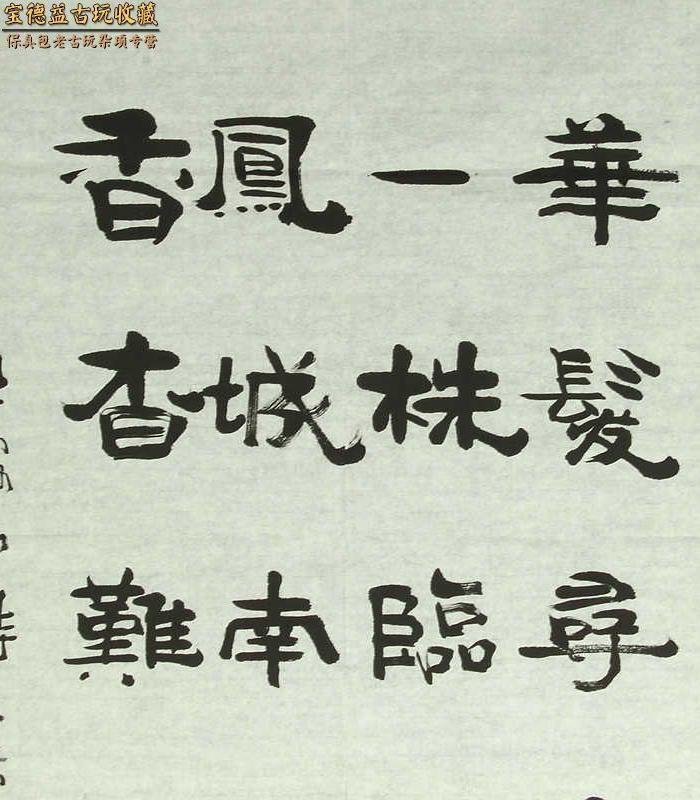 宝德益古玩收藏
保真包老古玩杂项专营
華髮尋
一株臨
鳳城南
香杳難